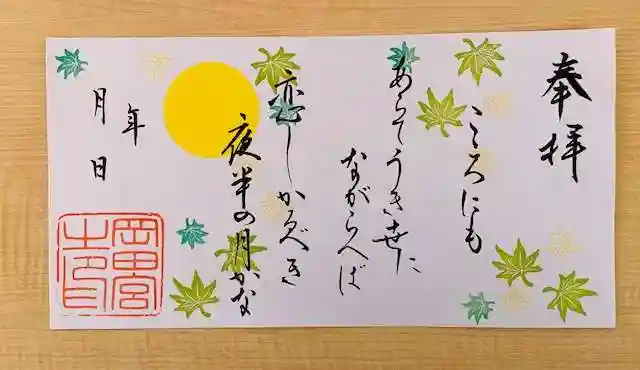 奉拝
こころにも
あらてうき世に
ながらへば
恋しかるべき
夜半の月かな
年
月日
岡田宮
之印